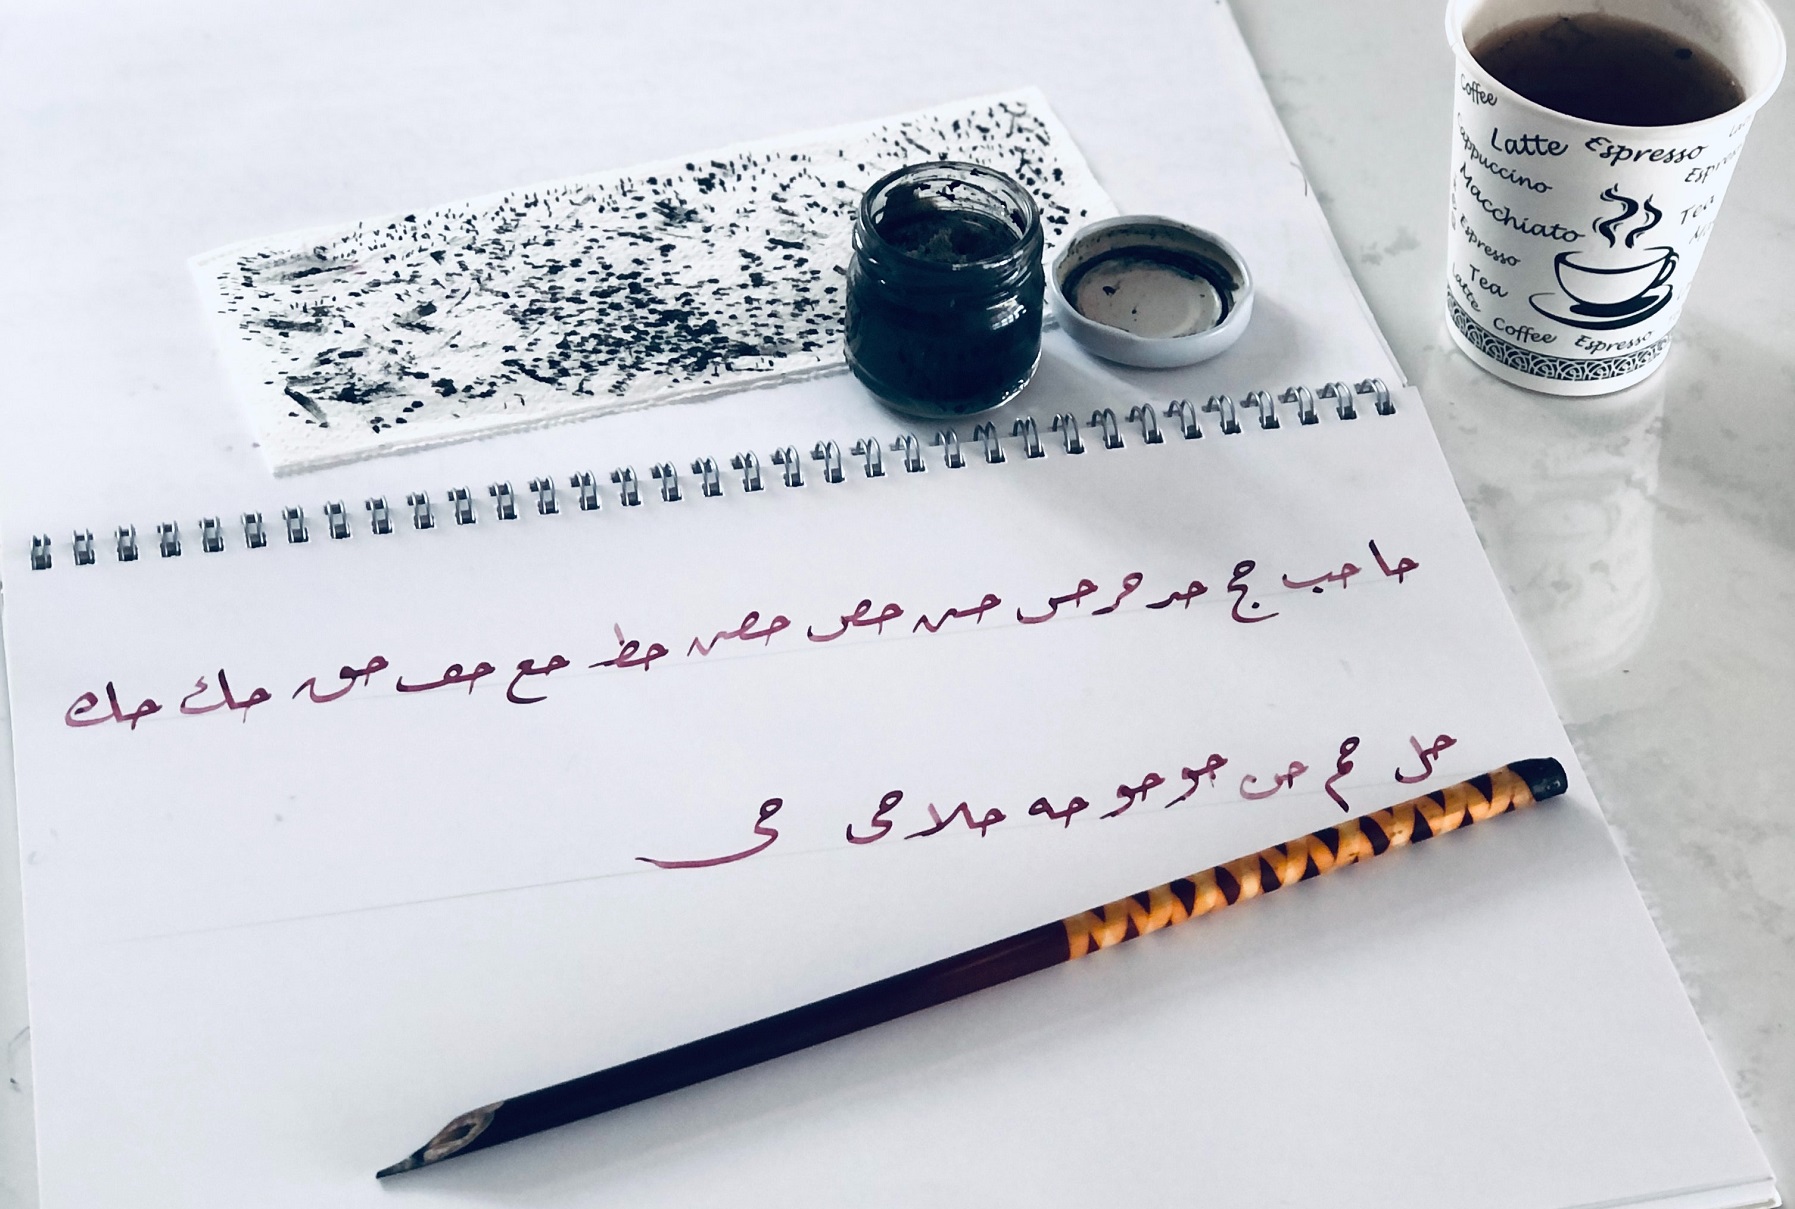 حا حب حج حد حر حس حس حص حص حط حع حف حق حك حك
حل حم حن حو حو حه حلا حى حى
Coffee
Latte Espresso
Cappuccino
Macchiato
Espresso
Tea
Latte
Coffee Espresso
Tea